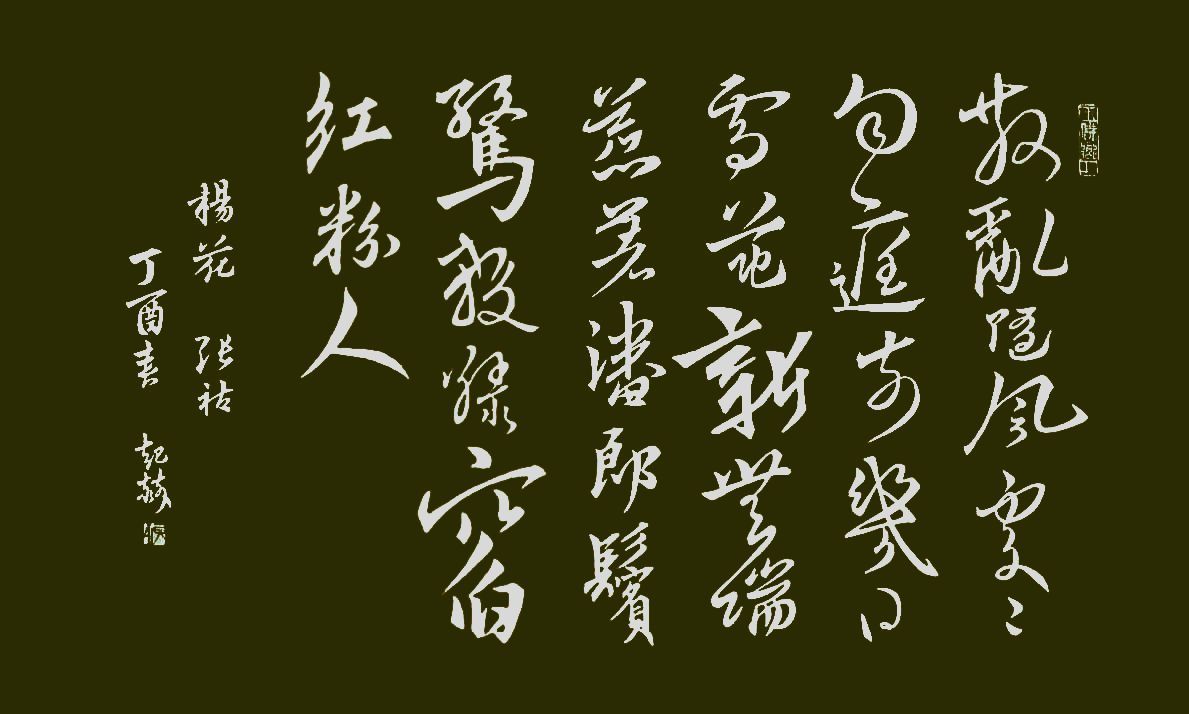 散亂隨風處々
勻庭前幾日
雪花新無端
惹著潘郎鬢
驚殺綠窗
紅粉人
楊花 張祜
丁酉春